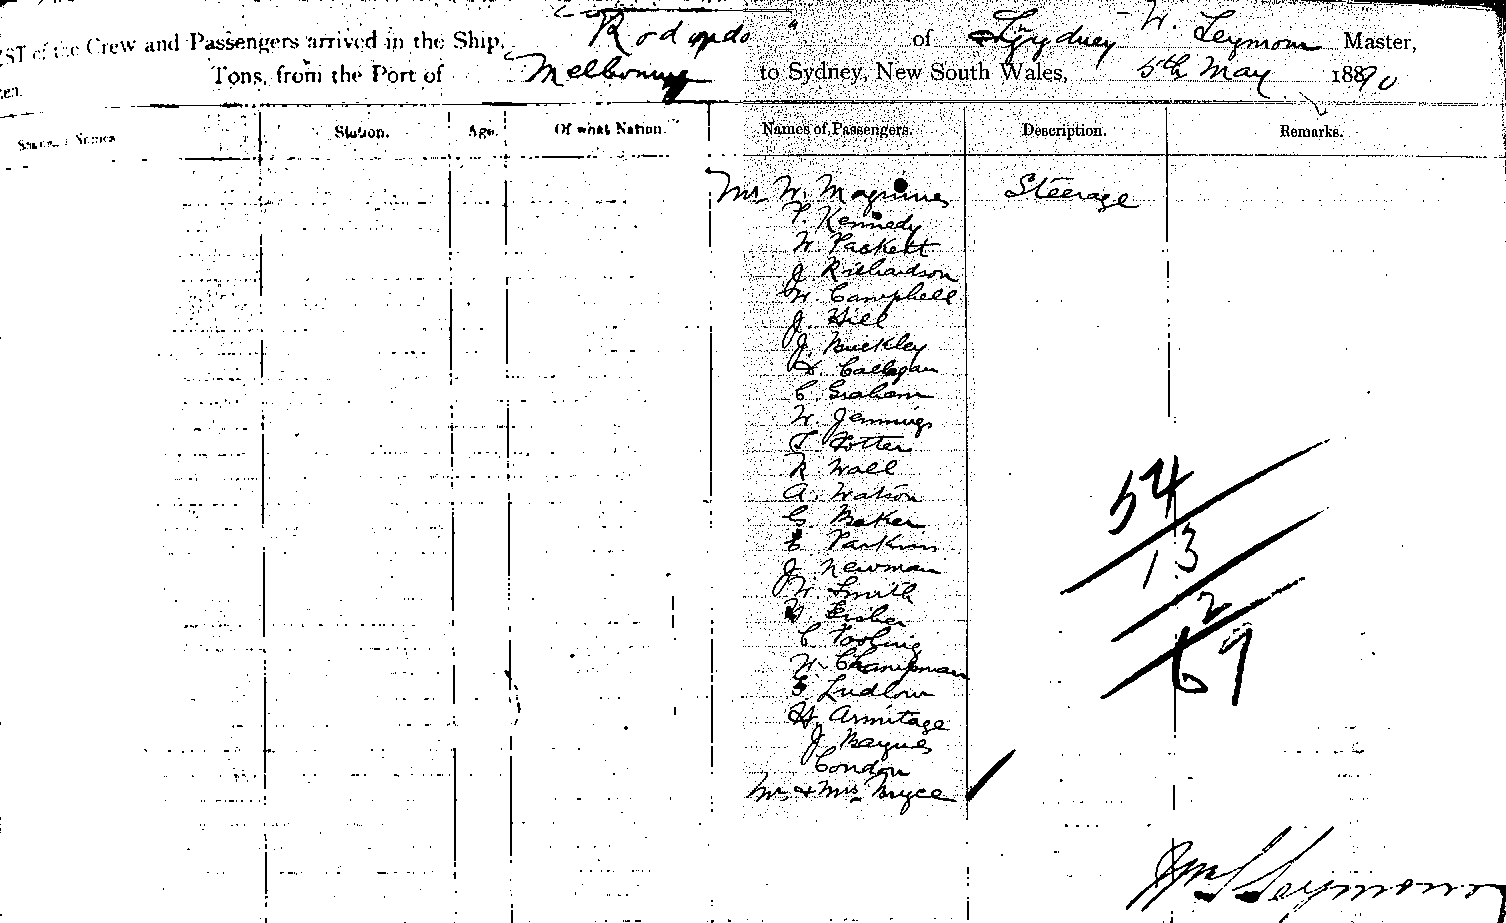 ST of the Crew and Passengers arrived in the Ship, Rodondo of Sydney W. Seymour Master,
Tons, from the Port of Melbourne to Sydney, New South Wales, 5th May 1890
Names Station. Age. Of what Nation. Names of Passengers. Description. Remarks.
Mr W. Steerage
P. Kennedy
W. Packett
J. Richardson
W. Campbell
J. Hill
J. Buckley
Callagan
C. Graham
W. Jennings
T. Potter
R Wall
A. Watson
G. Baker
Parkins
J. Newman
W. Smith
Fisher
C
W. Champman
Ludlow
H. Armitage
J. Baynes
Condon
Mr & Mrs Bryce
54
13
2
69
Wm S Seymour